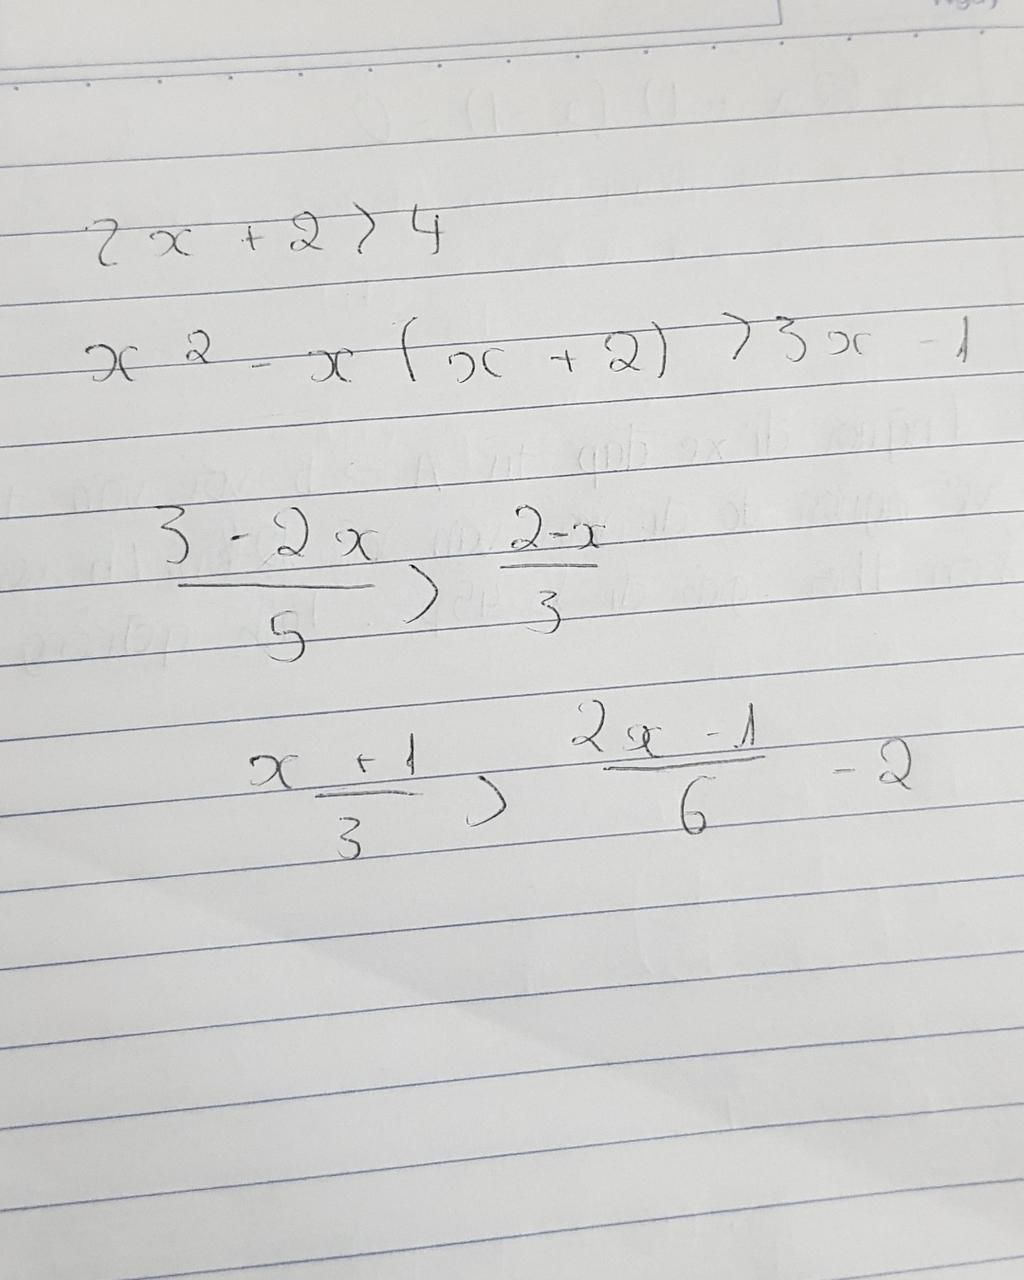 2x + 2 > 4
x² - x (x + 2) > 3x - 1
3 - 2x / 5 > 2-x / 3
x + 1 / 3 > 2x - 1 / 6 - 2